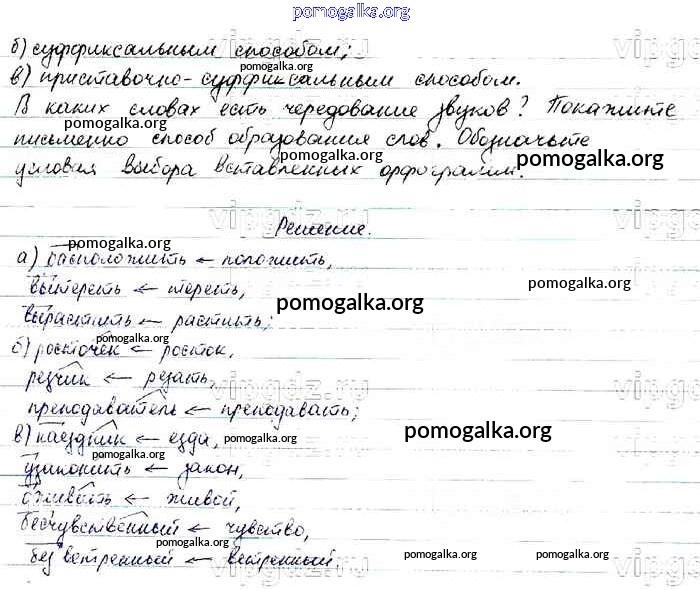 pomogalka.org
б) суффиксальным способом;
pomogalka.org
в) приставочно-суффиксальным способом.
В каких словах есть чередование звуков? Покажите
pomogalka.org
письменно способ образования слов. Обозначьте
pomogalka.org pomogalka.org
условия выбора вставленных орфограмм.
vipgdz.ru
Решение.
pomogalka.org
а) расположить ← положить,
вытереть ← тереть,
pomogalka.org
pomogalka.org
вырастить ← растить;
pomogalka.org
б) росточек ← росток,
резчик ← резать,
vipgdz.ru
преподаватель ← преподавать;
в) наездник ← езда, pomogalka.org pomogalka.org
узаконить ← закон,
pomogalka.org
оживать ← живой,
бесчувственный ← чувство,
pomogalka.org
безветренный ← ветренный.
pomogalka.org pomogalka.org
vipgdz.ru